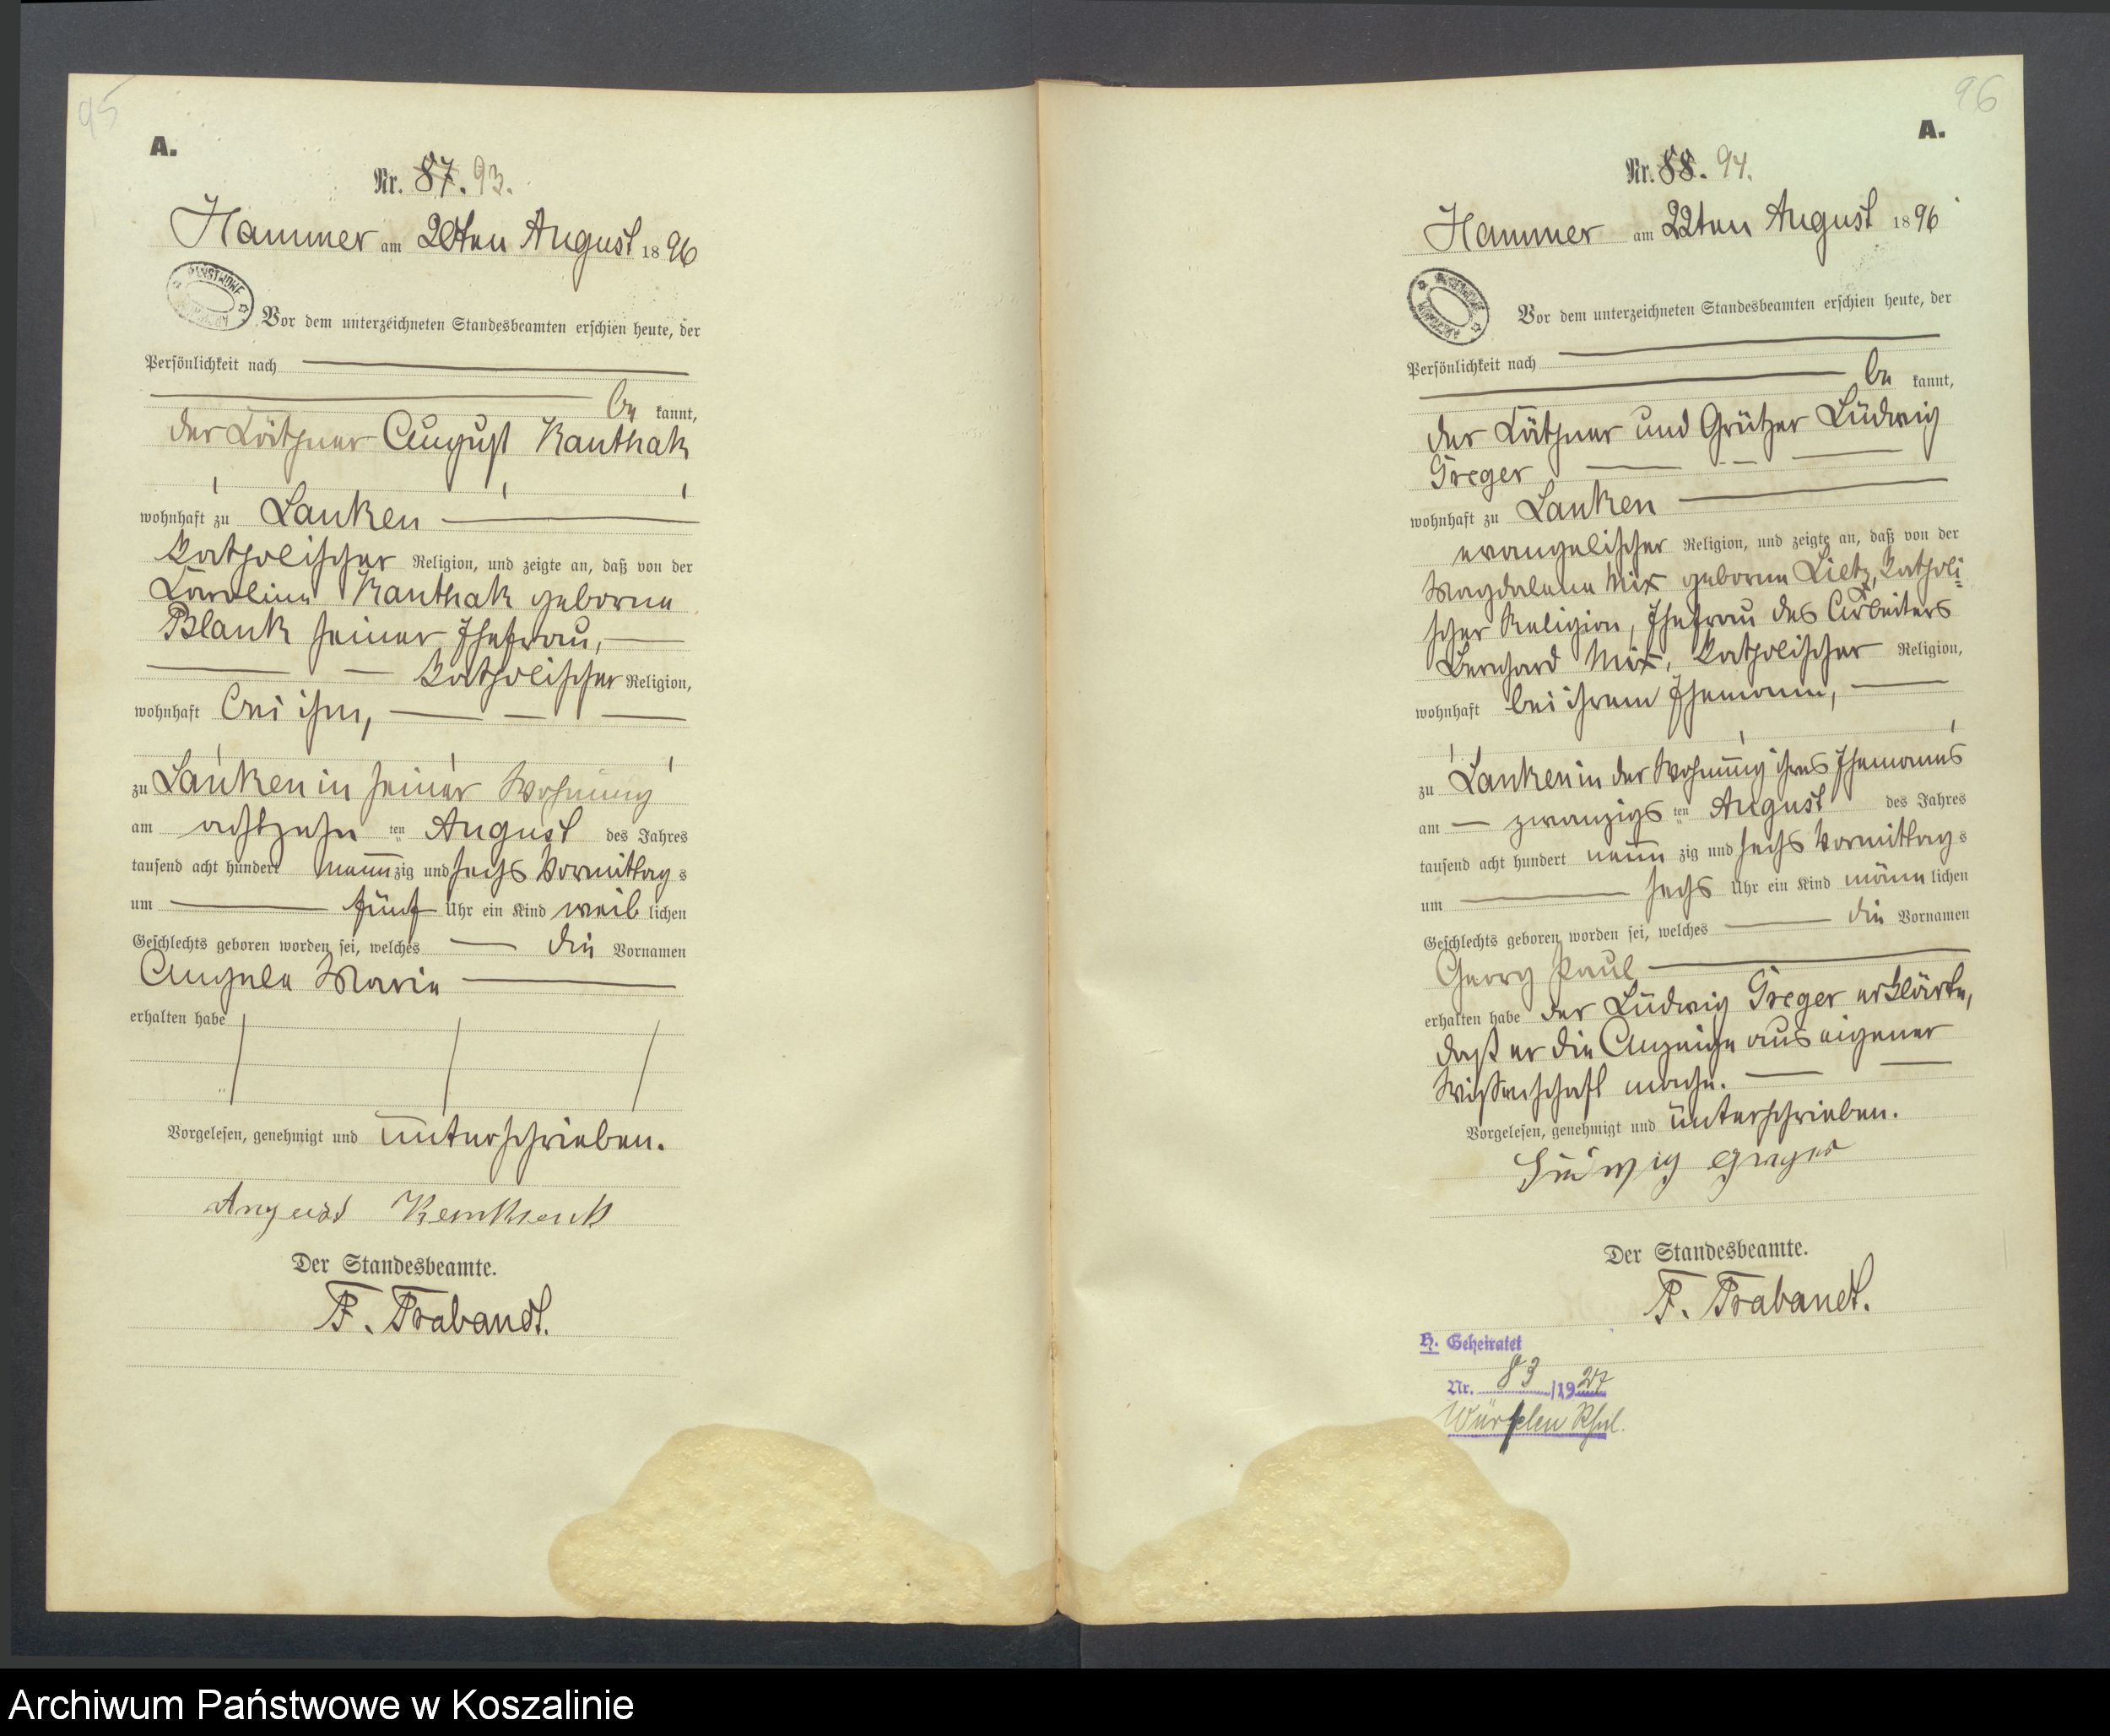 95
A.
Nr. 87. 93.
Hammer am 20ten August 1896
PAŃSTWOWE ARCHIWUM
Vor dem unterzeichneten Standesbeamten erschien heute, der
Persönlichkeit nach
be kannt,
der Käthner August Kanthak
wohnhaft zu Lanken
katholischer Religion, und zeigte an, daß von der
Karoline Kanthak geborne
Blank seiner Ehefrau,
katholischer Religion,
wohnhaft bei ihm,
zu Lanken in seiner Wohnung
am achtzehn ten August des Jahres
tausend acht hundert neun zig und sechs Vormittag s
um fünf Uhr ein Kind weib lichen
Geschlechts geboren worden sei, welches die Vornamen
Angela Marie
erhalten habe
Vorgelesen, genehmigt und unterschrieben.
August Kanthack
Der Standesbeamte.
F. Trabandt.
96
A.
Nr. 88. 94.
Hammer am 22ten August 1896
Vor dem unterzeichneten Standesbeamten erschien heute, der
Persönlichkeit nach
be kannt,
der Käthner und Grützer Ludwig
Greger
wohnhaft zu Lanken
evangelischer Religion, und zeigte an, daß von der
Magdalena Mix geborne Lietz, katholi=
scher Religion, Ehefrau des Arbeiters
Bernhard Mix, katholischer Religion,
wohnhaft bei ihrem Ehemann,
zu Lanken in der Wohnung ihres Ehemanns
am zwanzigs ten August des Jahres
tausend acht hundert neun zig und sechs Vormittag s
um sechs Uhr ein Kind männ lichen
Geschlechts geboren worden sei, welches die Vornamen
Georg Paul
erhalten habe der Ludwig Greger erklärte,
daß er die Anzeige aus eigener
Wissenschaft mache.
Vorgelesen, genehmigt und unterschrieben.
Ludwig Greger
Der Standesbeamte.
F. Trabandt.
H. Geheiratet
Nr. 83 /1927
Würselen Rhld.
Archiwum Państwowe w Koszalinie